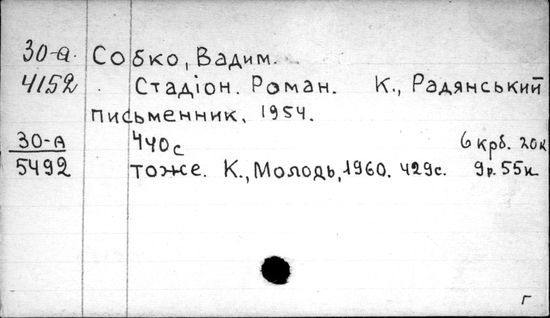 30-а. Собко, Вадим.
4152 . Стадіон. Роман. К., Радянський
письменник, 1954.
30-А 440с 6 крб. 20к
5492 тоже. К., Молодь, 1960. 429с. 9р. 55к
г